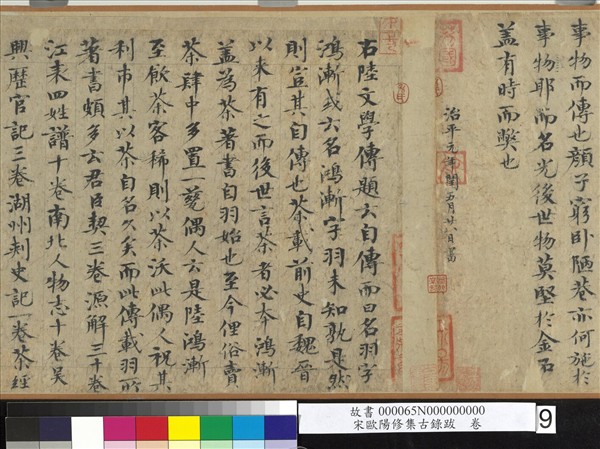 事物而傳也顏子窮卧陋巷亦何施於
事物耶而名光後世物莫堅於金石
蓋有時而獘也
治平元年閏五月廿八日書
右陸文學傳題云自傳而曰名羽字
鴻漸或云名鴻漸字羽未知孰是然
則豈其自傳也茶載前史自魏晉
以來有之而後世言茶者必本鴻漸
蓋為茶著書自羽始也至今俚俗賣
茶肆中多置一甆偶人云是陸鴻漸
至飲茶客稀則以茶沃此偶人祝其
利市其以茶自名久矣而此傳載羽所
著書頗多云君臣契三卷源解三十卷
江表四姓譜十卷南北人物志十卷吳
興歷官記三卷湖州刺史記一卷茶經
故書 000065N000000000
宋歐陽修集古錄跋 卷
9